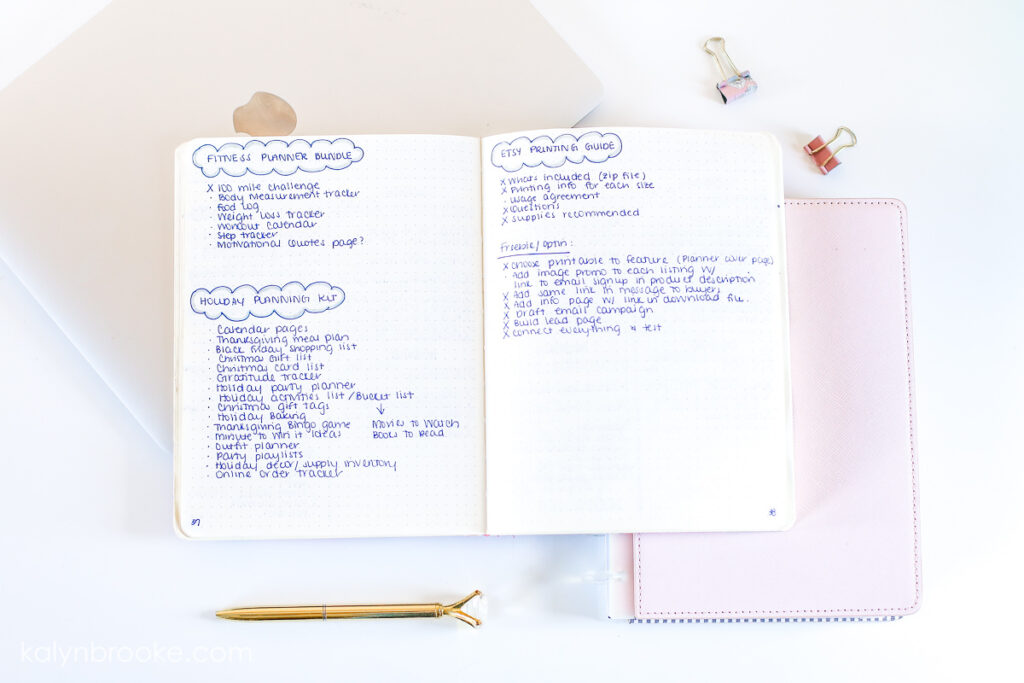 FITNESS PLANNER BUNDLE
X 100 mile challenge
· Body Measurement tracker
· Food Log
· Weight Loss Tracker
· Workout Calendar
· Step tracker
· Motivational Quotes page?
HOLIDAY PLANNING KIT
· Calendar pages
· Thanksgiving meal plan
· Black Friday shopping list
· Christmas Gift list
· Christmas card list
· Gratitude tracker
· Holiday party planner
· Holiday activities list / Bucket list
· Christmas gift tags ↓
· Holiday Baking
· Thanksgiving Bingo game Movies to Watch
· Minute to win it ideas Books to Read
· Outfit planner
· Party playlists
· Holiday decor/supply inventory
· Online order tracker
37
ETSY PRINTING GUIDE
X Whats included (zip file)
X Printing info for each size
· Usage agreement
X Questions
X Supplies recommended
Freebie/Optin:
X Choose printable to feature (Planner cover page)
· Add image promo to each listing w/
link to email signup in product description
X Add same link in message to buyers
X Add info page w/ link in download file.
X Draft email campaign
X Build lead page
X Connect everything & test
kalynbrooke.com